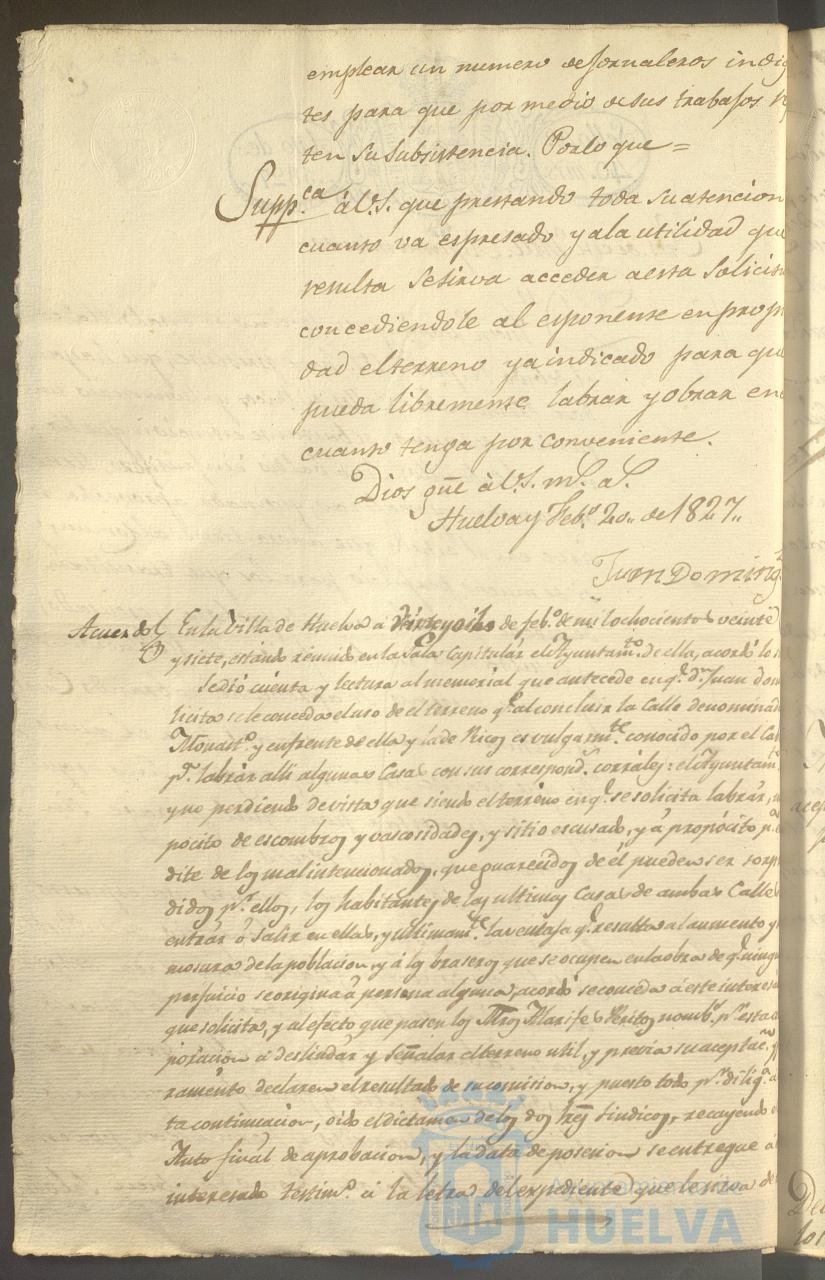 emplear un numero de jornaleros indig
tes para que por medio de sus trabajos
ten su subsistencia. Por lo que =
Supp.ca á V.S. que prestando toda su atencion
cuanto va espresado y a la utilidad que
resulta se sirva acceder a esta solicitu
concediendole al esponente en propi
dad el terreno ya indicado para que
pueda libremente labrar y obrar en
cuanto tenga por conveniente.
Dios gũe à V.S. m.s a.s
Huelva y Feb.o 20,, de 1827,,
Juan Doming
Acuerdo En la Villa de Huelva á de feb.o de mil ochocientos veinte
y siete, estando reunido en la Sala Capitular el Ayuntam.to de ella, acordó lo
Se dió cuenta y lectura al memorial que antecede en q.e d.n Juan dom
licita se le conceda el uso de el terreno q.e al concluir la Calle denominada
Monast.o y enfrente de ella y la de Ricos es vulgarm.te conocido por el Ca
p.a labrar alli algunas Casas con sus correspond.s corrales: el Ayuntam.t
y no perdiendo de vista que siendo el terreno en q.e se solicita labrar,
pocito de escombros y vascosidades, y sitio escusado, y á propócito p.a
dite de los mal intencionados, que guarecidos de él pueden ser sorp
didos p.r ellos, los habitantes de las ultimas Casas de ambas Calles
entrar ó salir en ellas, y ultimam.te la ventaja q.e resulta al aumento y
mosura de la poblacion, y á los braseros que se ocupen en la obra de q.e ningu
perjuicio se origina á persona alguna, acordó se conceda á este interesa
que solicita, y al efecto que pasen los Mtros Alarifes Peritos nomb.s p.r esta
poracion á deslindar y señalar el terreno util, y previa su aceptac.n y
ramento declaren el resultado de su comision, y puesto todo p.r dilig.a
ta continuacion, oido el dictamen de los dos Síndicos, recayendo
Auto final de aprobacion, y la data de posesion se entregue á
interesado testim.o á la letra del expediente que le sirva de
Ayuntamiento de
HUELVA